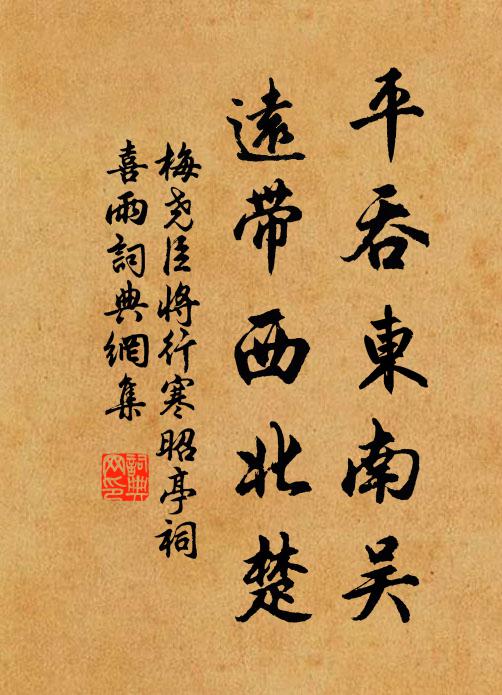 平吞東南吴
遠帶西北楚
梅尧臣将行寒昭亭祠
喜雨詞典網集
詞典
网印